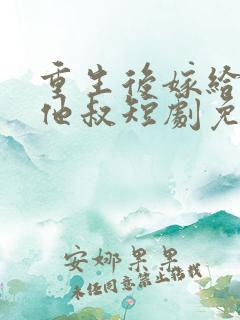 重生後嫁給
他叔短劇免
安娜果果
未经同意禁止转载